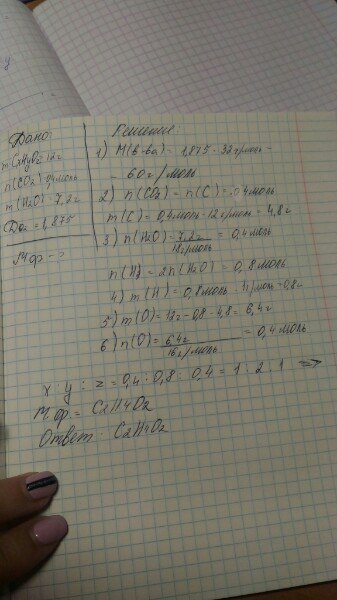 Дано:
m CxHyOz 12г
n(CO2) 0,4моль
m(H2O) = 7,2г
Do2 = 1,875
М.ф - ?
Решение
1) M(в-ва) = 1,875 · 32г/моль =
= 60г/моль
2) n(CO2) = n(C) = 0,4моль
m(C) = 0,4моль · 12г/моль = 4,8г
3) n(H2O) = 7,2г
18г/моль = 0,4моль
n(H) = 2n(H2O) = 0,8моль
4) m(H) = 0,8моль · 1г/моль = 0,8г
5) m(O) = 12г - 0,8 - 4,8 = 6,4г
6) n(O) = 6,4г
16г/моль = 0,4моль
x : y : z = 0,4 : 0,8 : 0,4 = 1 : 2 : 1 =>
М.ф. = C2H4O2
Ответ: C2H4O2